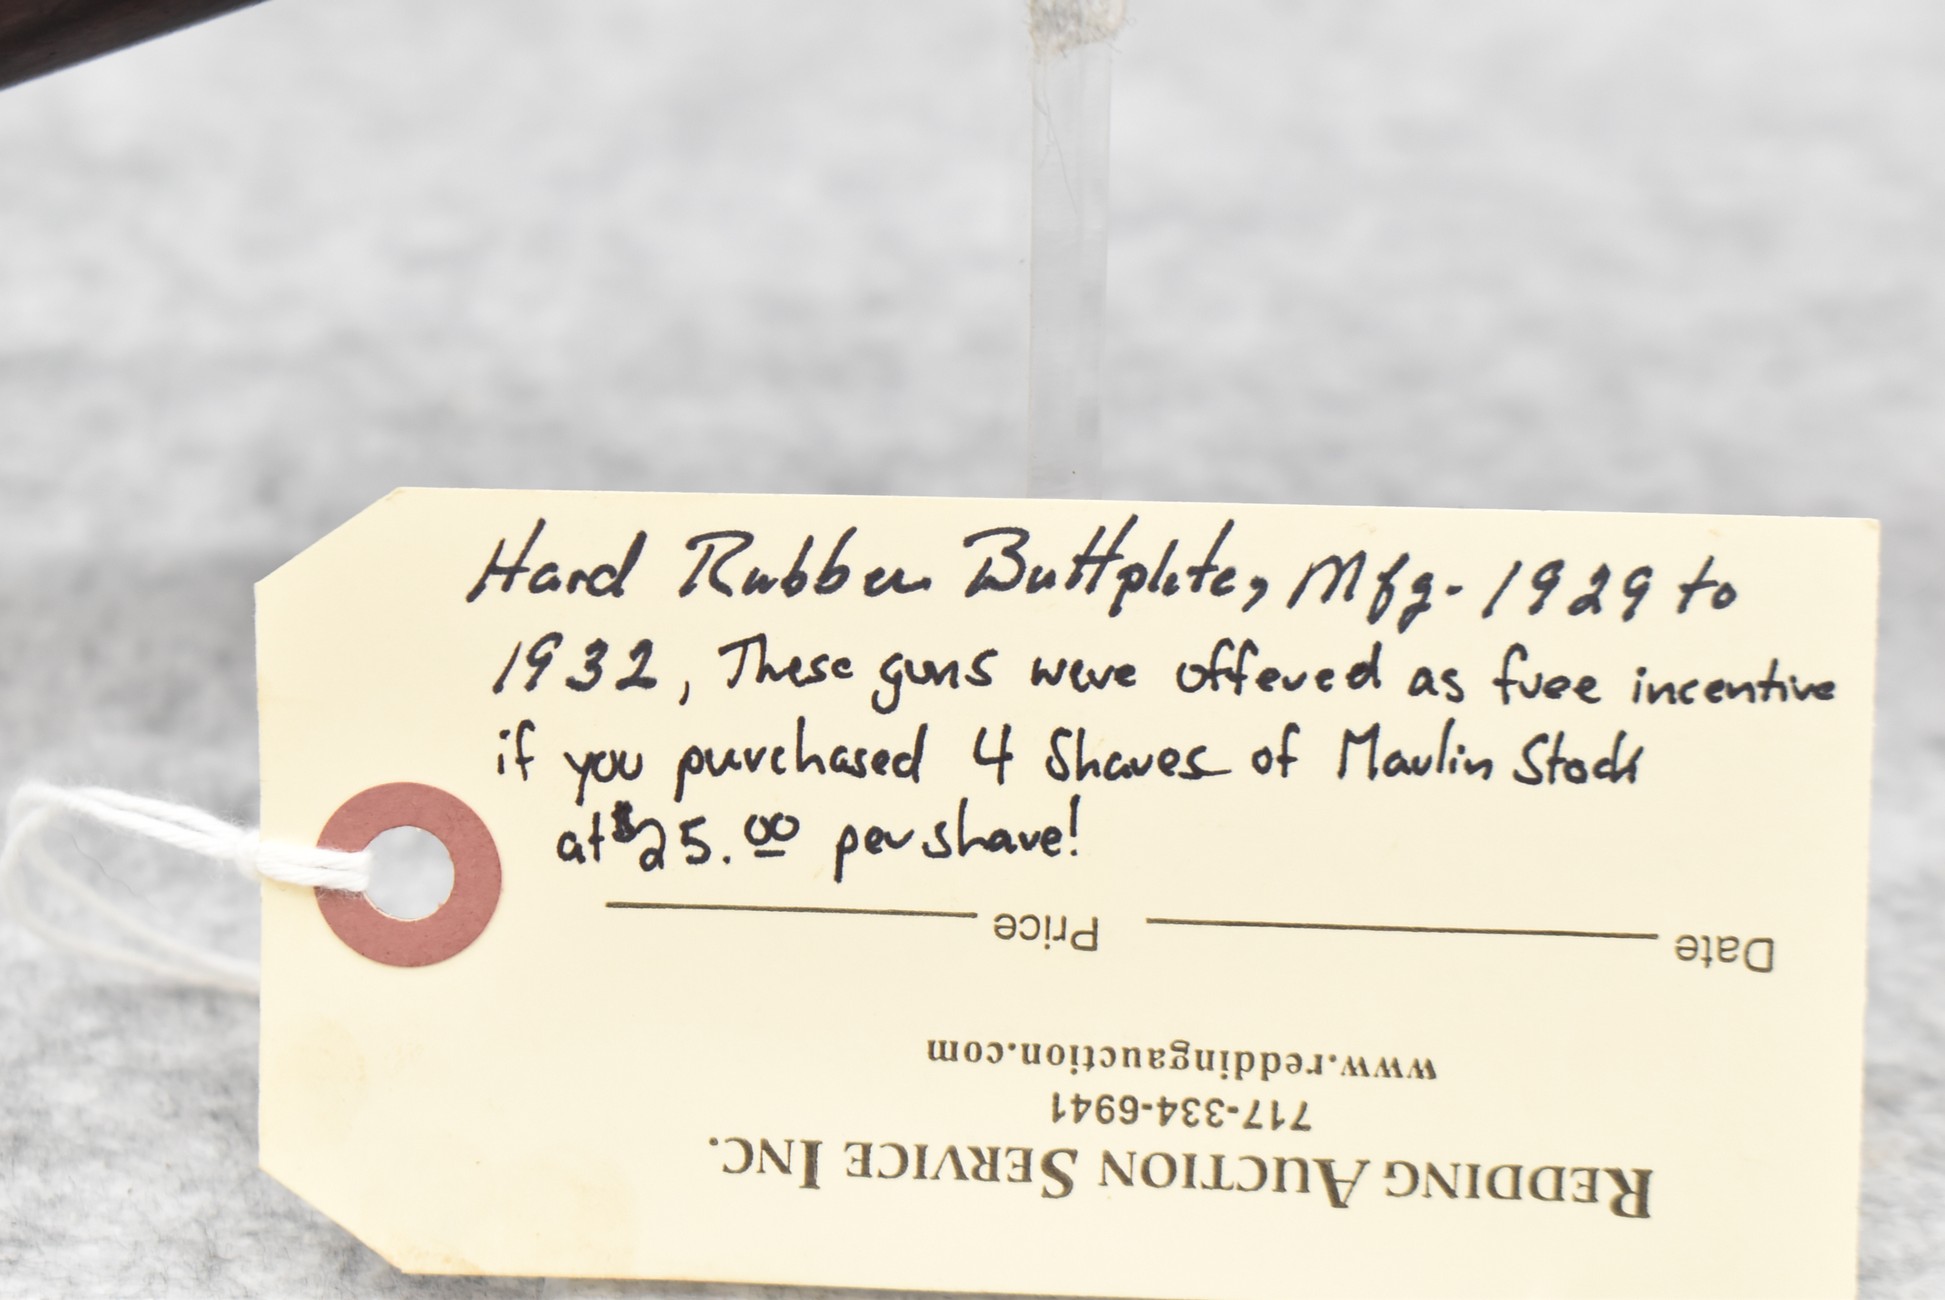 Hard Rubber Buttplate, Mfg - 1929 to
1932, These guns were offered as free incentive
if you purchased 4 Shares of Marlin Stock
at $25.00 per share!
Price
Date
www.reddingauction.com
717-334-6941
REDDING AUCTION SERVICE INC.